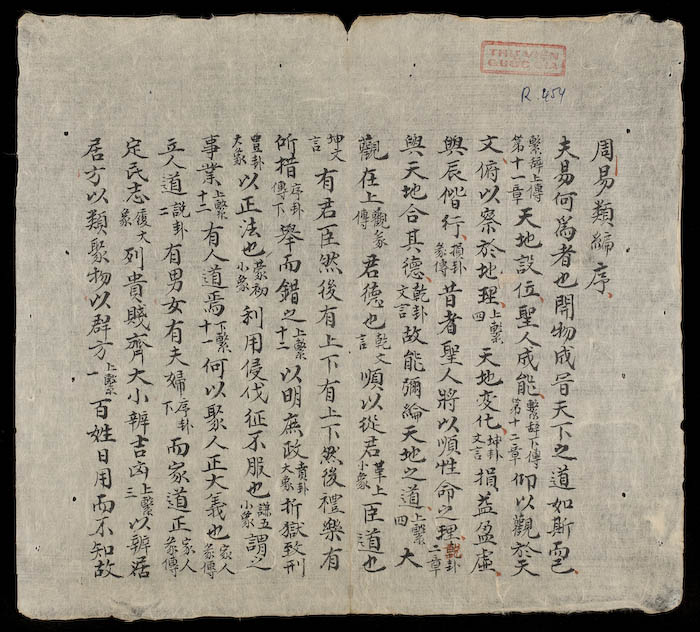 THƯ VIỆN
QUỐC GIA
R.454
周易類編序
夫易何為者也開物成冐天下之道如斯而已
繫辭上傳第十一章天地設位聖人成能繫辭下傳第十二章仰以觀於天
文俯以察於地理上繫四天地変化坤卦文言損益盈虛
與辰偕行損卦彖傳昔者聖人將以順性命之理乾卦二章
與天地合其德乾卦文言故能彌綸天地之道上繫四大
觀在上觀彖傳君德也乾文言順以從君革上小象臣道也
坤文言有君臣然後有上下有上下然後禮樂有
所措序卦傳下舉而錯之上繫十二以明庶政賁卦大象折獄致刑
豊卦大象以正法也蒙初小象利用侵伐征不服也謙五小象謂之
事業上繫十二有人道焉下繫十一何以聚人正大義也家人彖傳
立人道說卦二有男女有夫婦序卦下而家道正家人彖傳
定民志履大象列貴賤齊大小辨吉凶上繫三以辨居
居方以類聚物以群方上繫一百姓日用而不知故